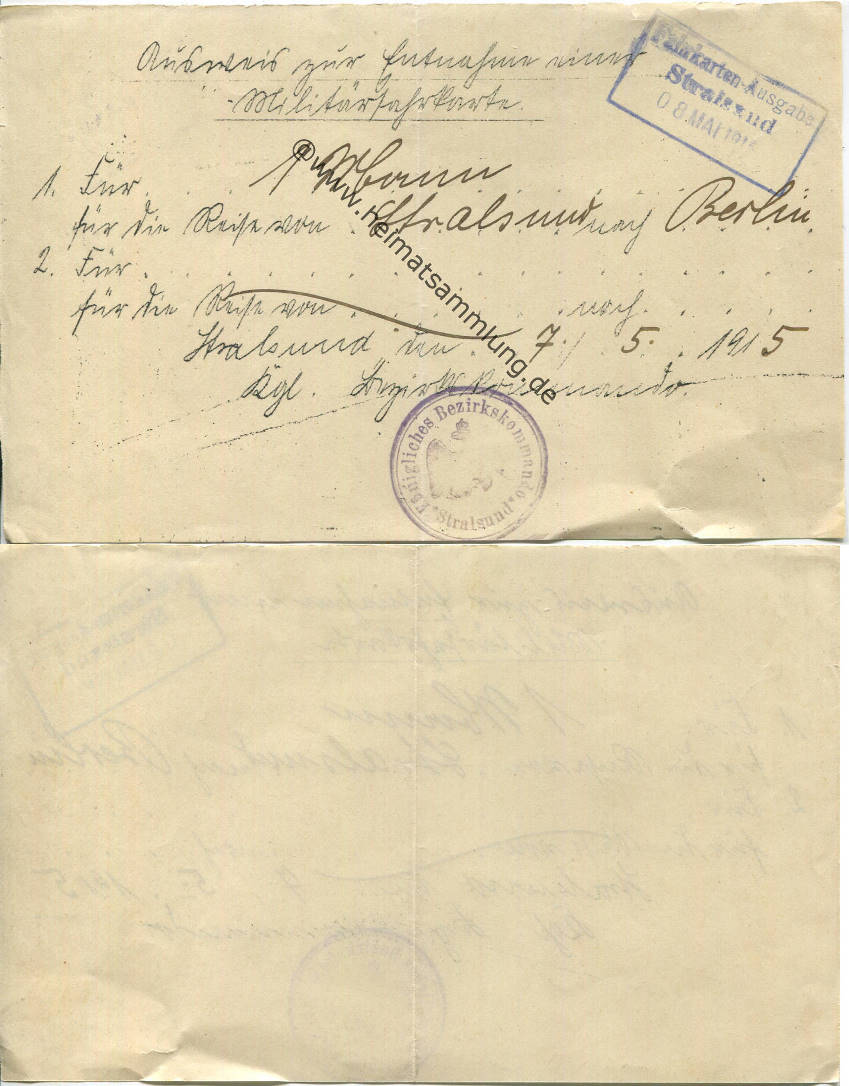 Ausweis zur Entnahme einer
Militärfahrkarte.
Fahrkarten-Ausgabe
Stralsund
08 MAI 191
1. Für . . 1 Mann
für die Reise von Stralsund nach Berlin
2. Für . . . . . . . . . . . . .
für die Reise von . . . . . nach . . . .
Stralsund den 7./ 5. 1915
Kgl. Bezirkskommando.
Königliches Bezirkskommando
*Stralsund*
© www.heimatsammlung.de